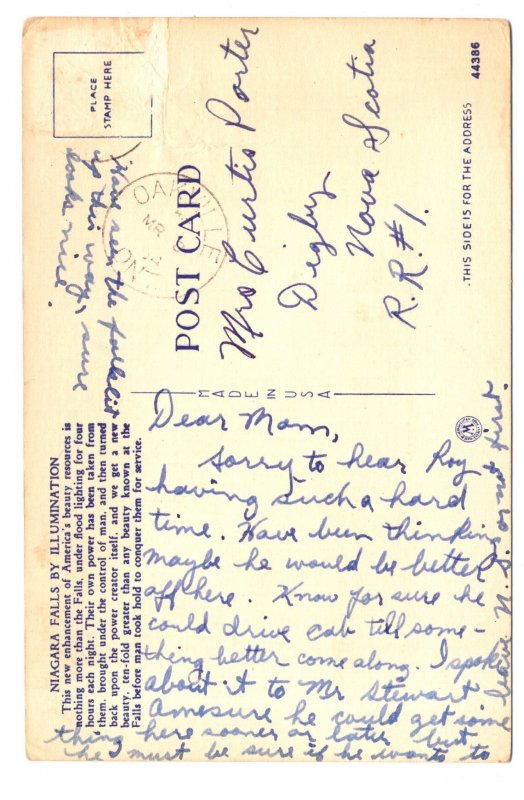 PLACE
STAMP HERE
OAKVILLE
MR
14
ONT
POST CARD
44386
THIS SIDE IS FOR THE ADDRESS
Mrs Curtis Porter
Digby
Nova Scotia
R.R.#1.
MADE IN USA
NIAGARA FALLS BY ILLUMINATION
This new enhancement of America's beauty resources is
nothing more than the Falls, under flood lighting for four
hours each night. Their own power has been taken from
them, brought under the control of man, and then turned
back upon the power creator itself, and we get a new
beauty, ten-fold greater than any beauty known at the
Falls before man took hold to conquer them for service.
Dear Mom,
Sorry to hear Roy
having such a hard
time. Have been thinking
maybe he would be better
off here. Know for sure he
could drive cab till some-
thing better come along. I spoke
about it to Mr Stewart
Amesure he could get some
thing here sooner or later but
he must be sure if he wants to
leave N.S. or not first.
Have seen the
up this way, sure
looks nice.